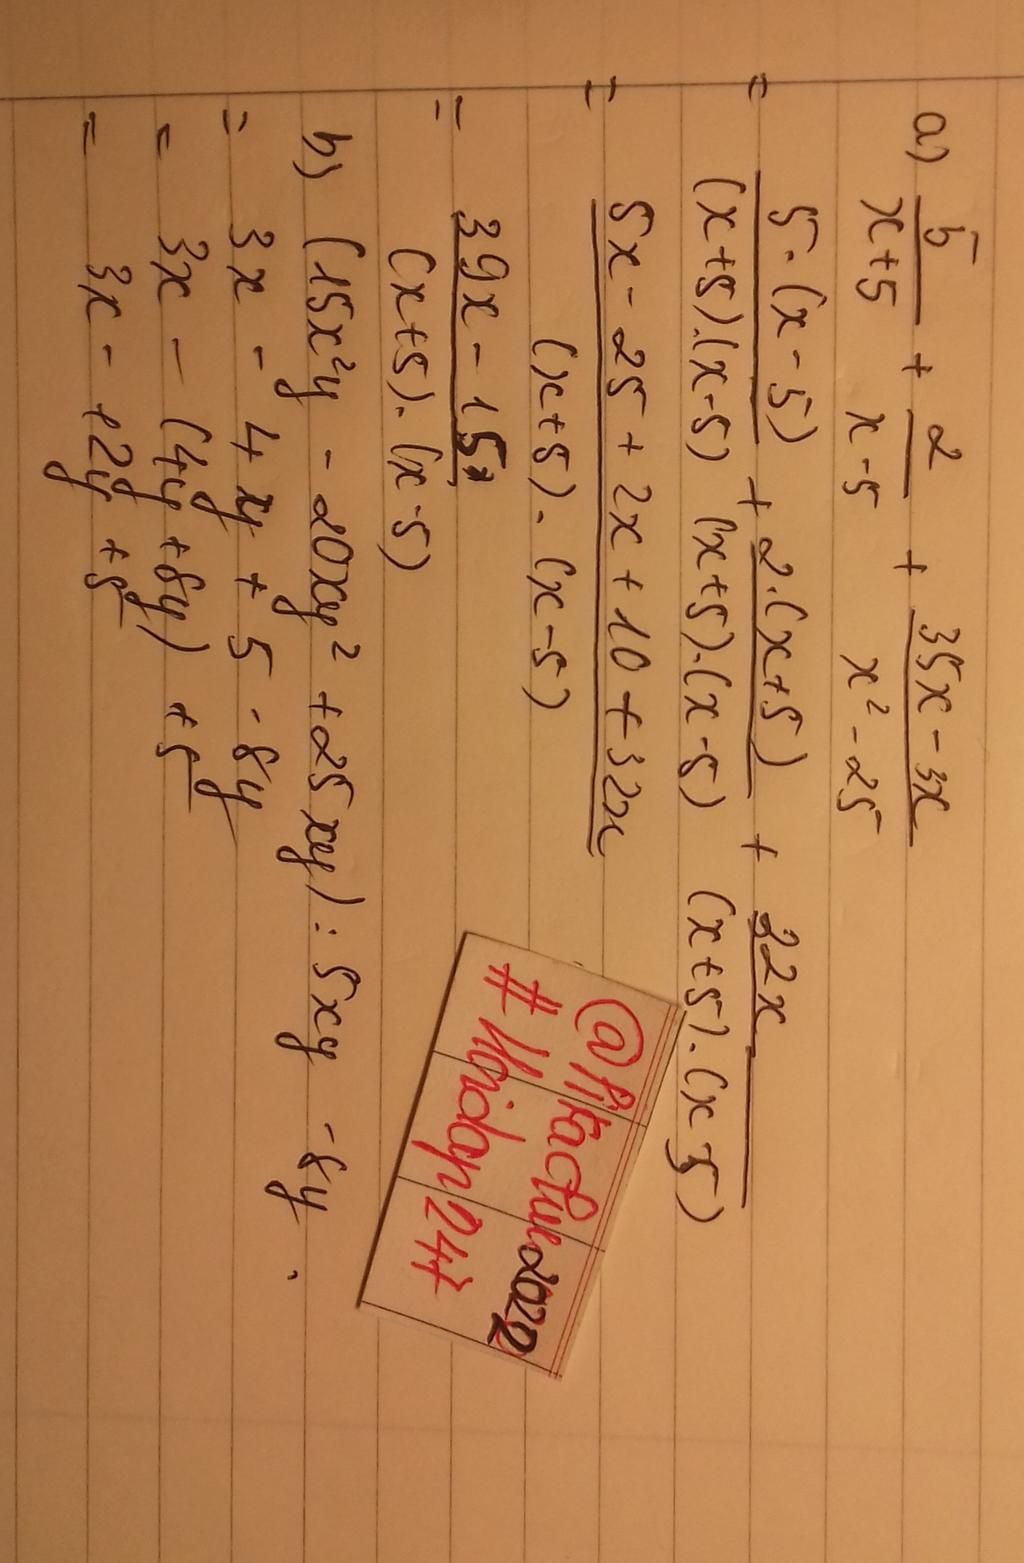 a) 5/(x+5) + 2/(x-5) + (35x-3x)/(x²-25)
= 5.(x-5)/((x+5).(x-5)) + 2.(x+5)/((x+5).(x-5)) + 32x/((x+5).(x-5))
= (5x-25+2x+10+32x)/((x+5).(x-5))
= (39x-15)/((x+5).(x-5))
b) (15x²y - 20xy² + 25xy) : 5xy - 8y.
= 3x - 4y + 5 - 8y
= 3x - (4y+8y) + 5
= 3x - 12y + 5
2022